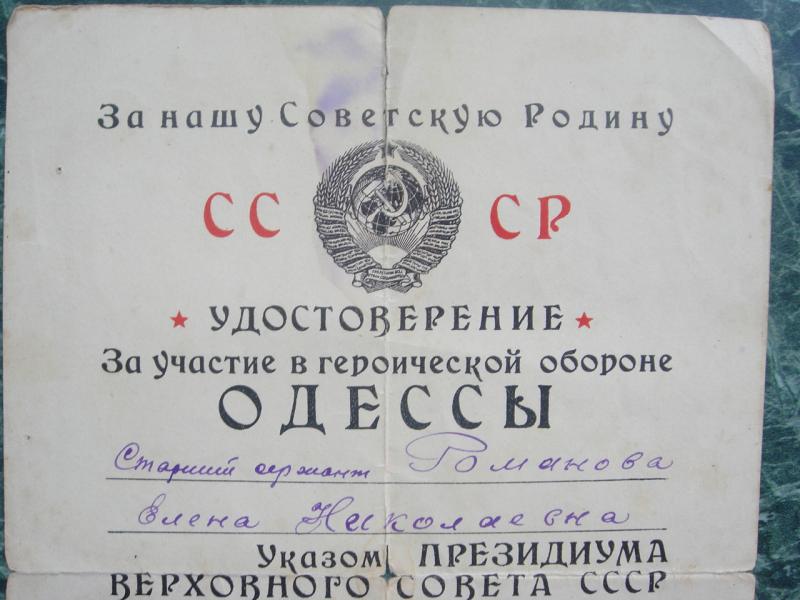 За нашу Советскую Родину
СС СР
УДОСТОВЕРЕНИЕ
За участие в героической обороне
ОДЕССЫ
Старший сержант Романова
Елена Николаевна
Указом ПРЕЗИДИУМА
ВЕРХОВНОГО СОВЕТА СССР